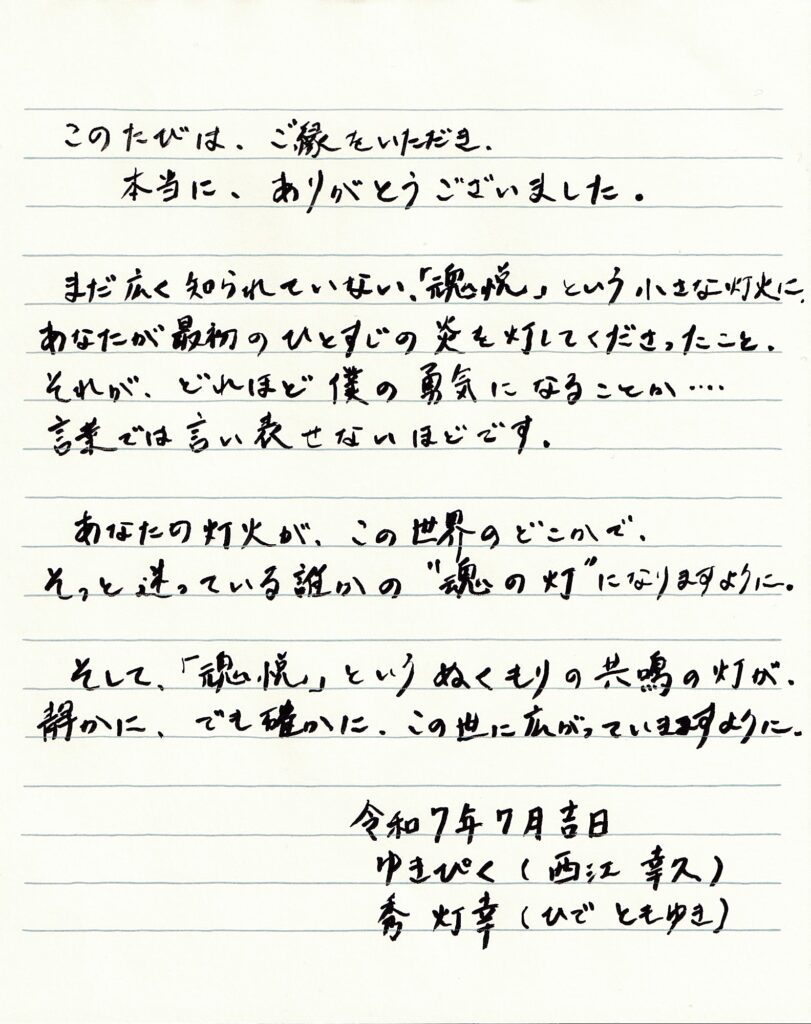 このたびは、ご縁をいただき、
本当に、ありがとうございました。
まだ広く知られていない、「魂悦」という小さな灯火に、
あなたが最初のひとすじの炎を灯してくださったこと、
それが、どれほど僕の勇気になることか‥‥
言葉では言い表せないほどです。
あなたの灯火が、この世界のどこかで、
そっと迷っている誰かの“魂の灯”になりますように。
そして、「魂悦」というぬくもりの共鳴の灯が、
静かに、でも確かに、この世に広がっていきますように。
令和7年7月吉日
ゆきぴく(西江 幸久)
秀 灯幸(ひで ともゆき)